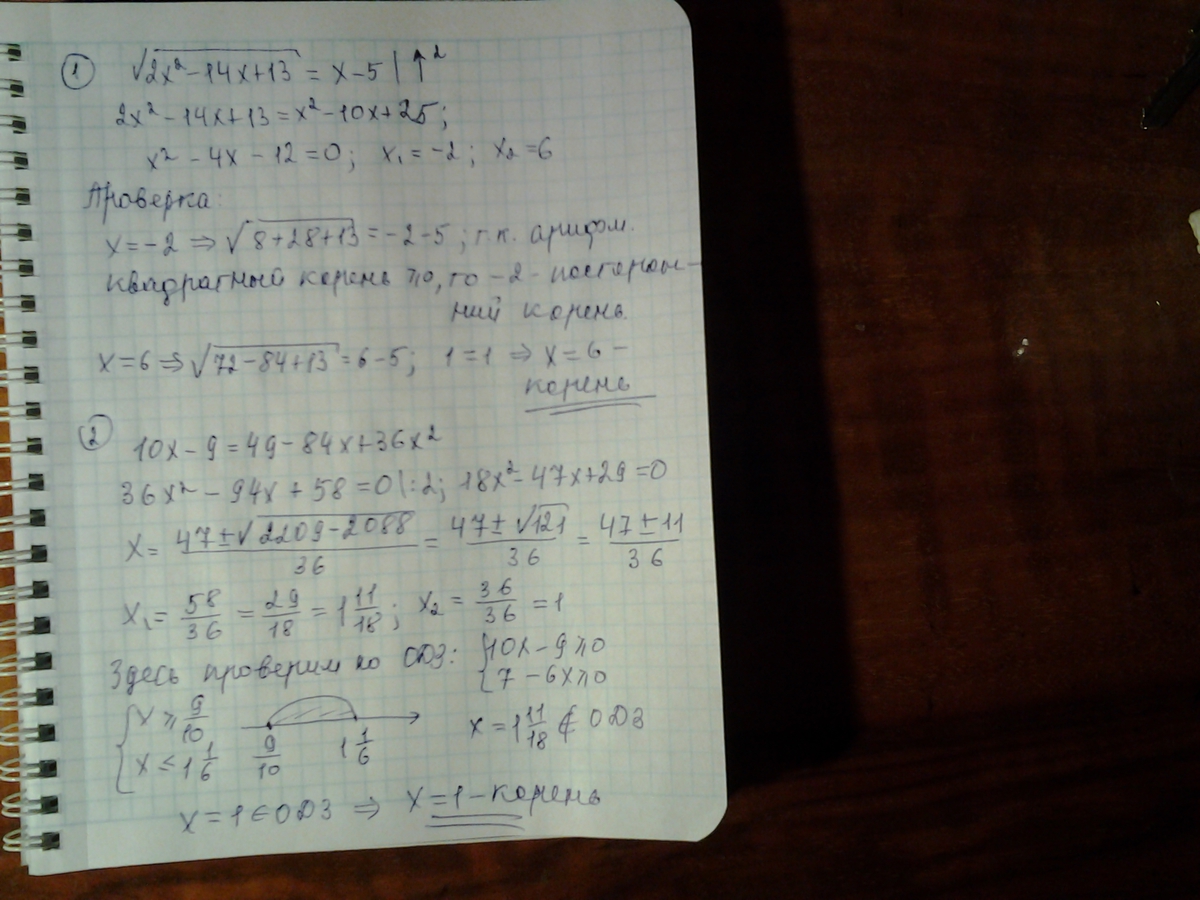 ① √(2x² - 14x + 13) = x - 5 | ↑²
2x² - 14x + 13 = x² - 10x + 25;
x² - 4x - 12 = 0; x₁ = -2; x₂ = 6
Проверка:
x = -2 ⇒ √(8 + 28 + 13) = -2 - 5; т.к. арифм.
квадратный корень ≥0, то -2 - посторон-
ний корень.
x = 6 ⇒ √(72 - 84 + 13) = 6 - 5; 1 = 1 ⇒ x = 6 -
корень
② 10x - 9 = 49 - 84x + 36x²
36x² - 94x + 58 = 0 |:2; 18x² - 47x + 29 = 0
x = (47 ± √(2209 - 2088))/36 = (47 ± √121)/36 = (47 ± 11)/36
x₁ = 58/36 = 29/18 = 1 11/18; x₂ = 36/36 = 1
Здесь проверим по ОДЗ: { 10x - 9 ≥ 0
{ 7 - 6x ≥ 0
{ x ≥ 9/10
{ x ≤ 1 1/6 9/10 1 1/6 x = 1 11/18 ∉ ОДЗ
x = 1 ∈ ОДЗ ⇒ x = 1 - корень